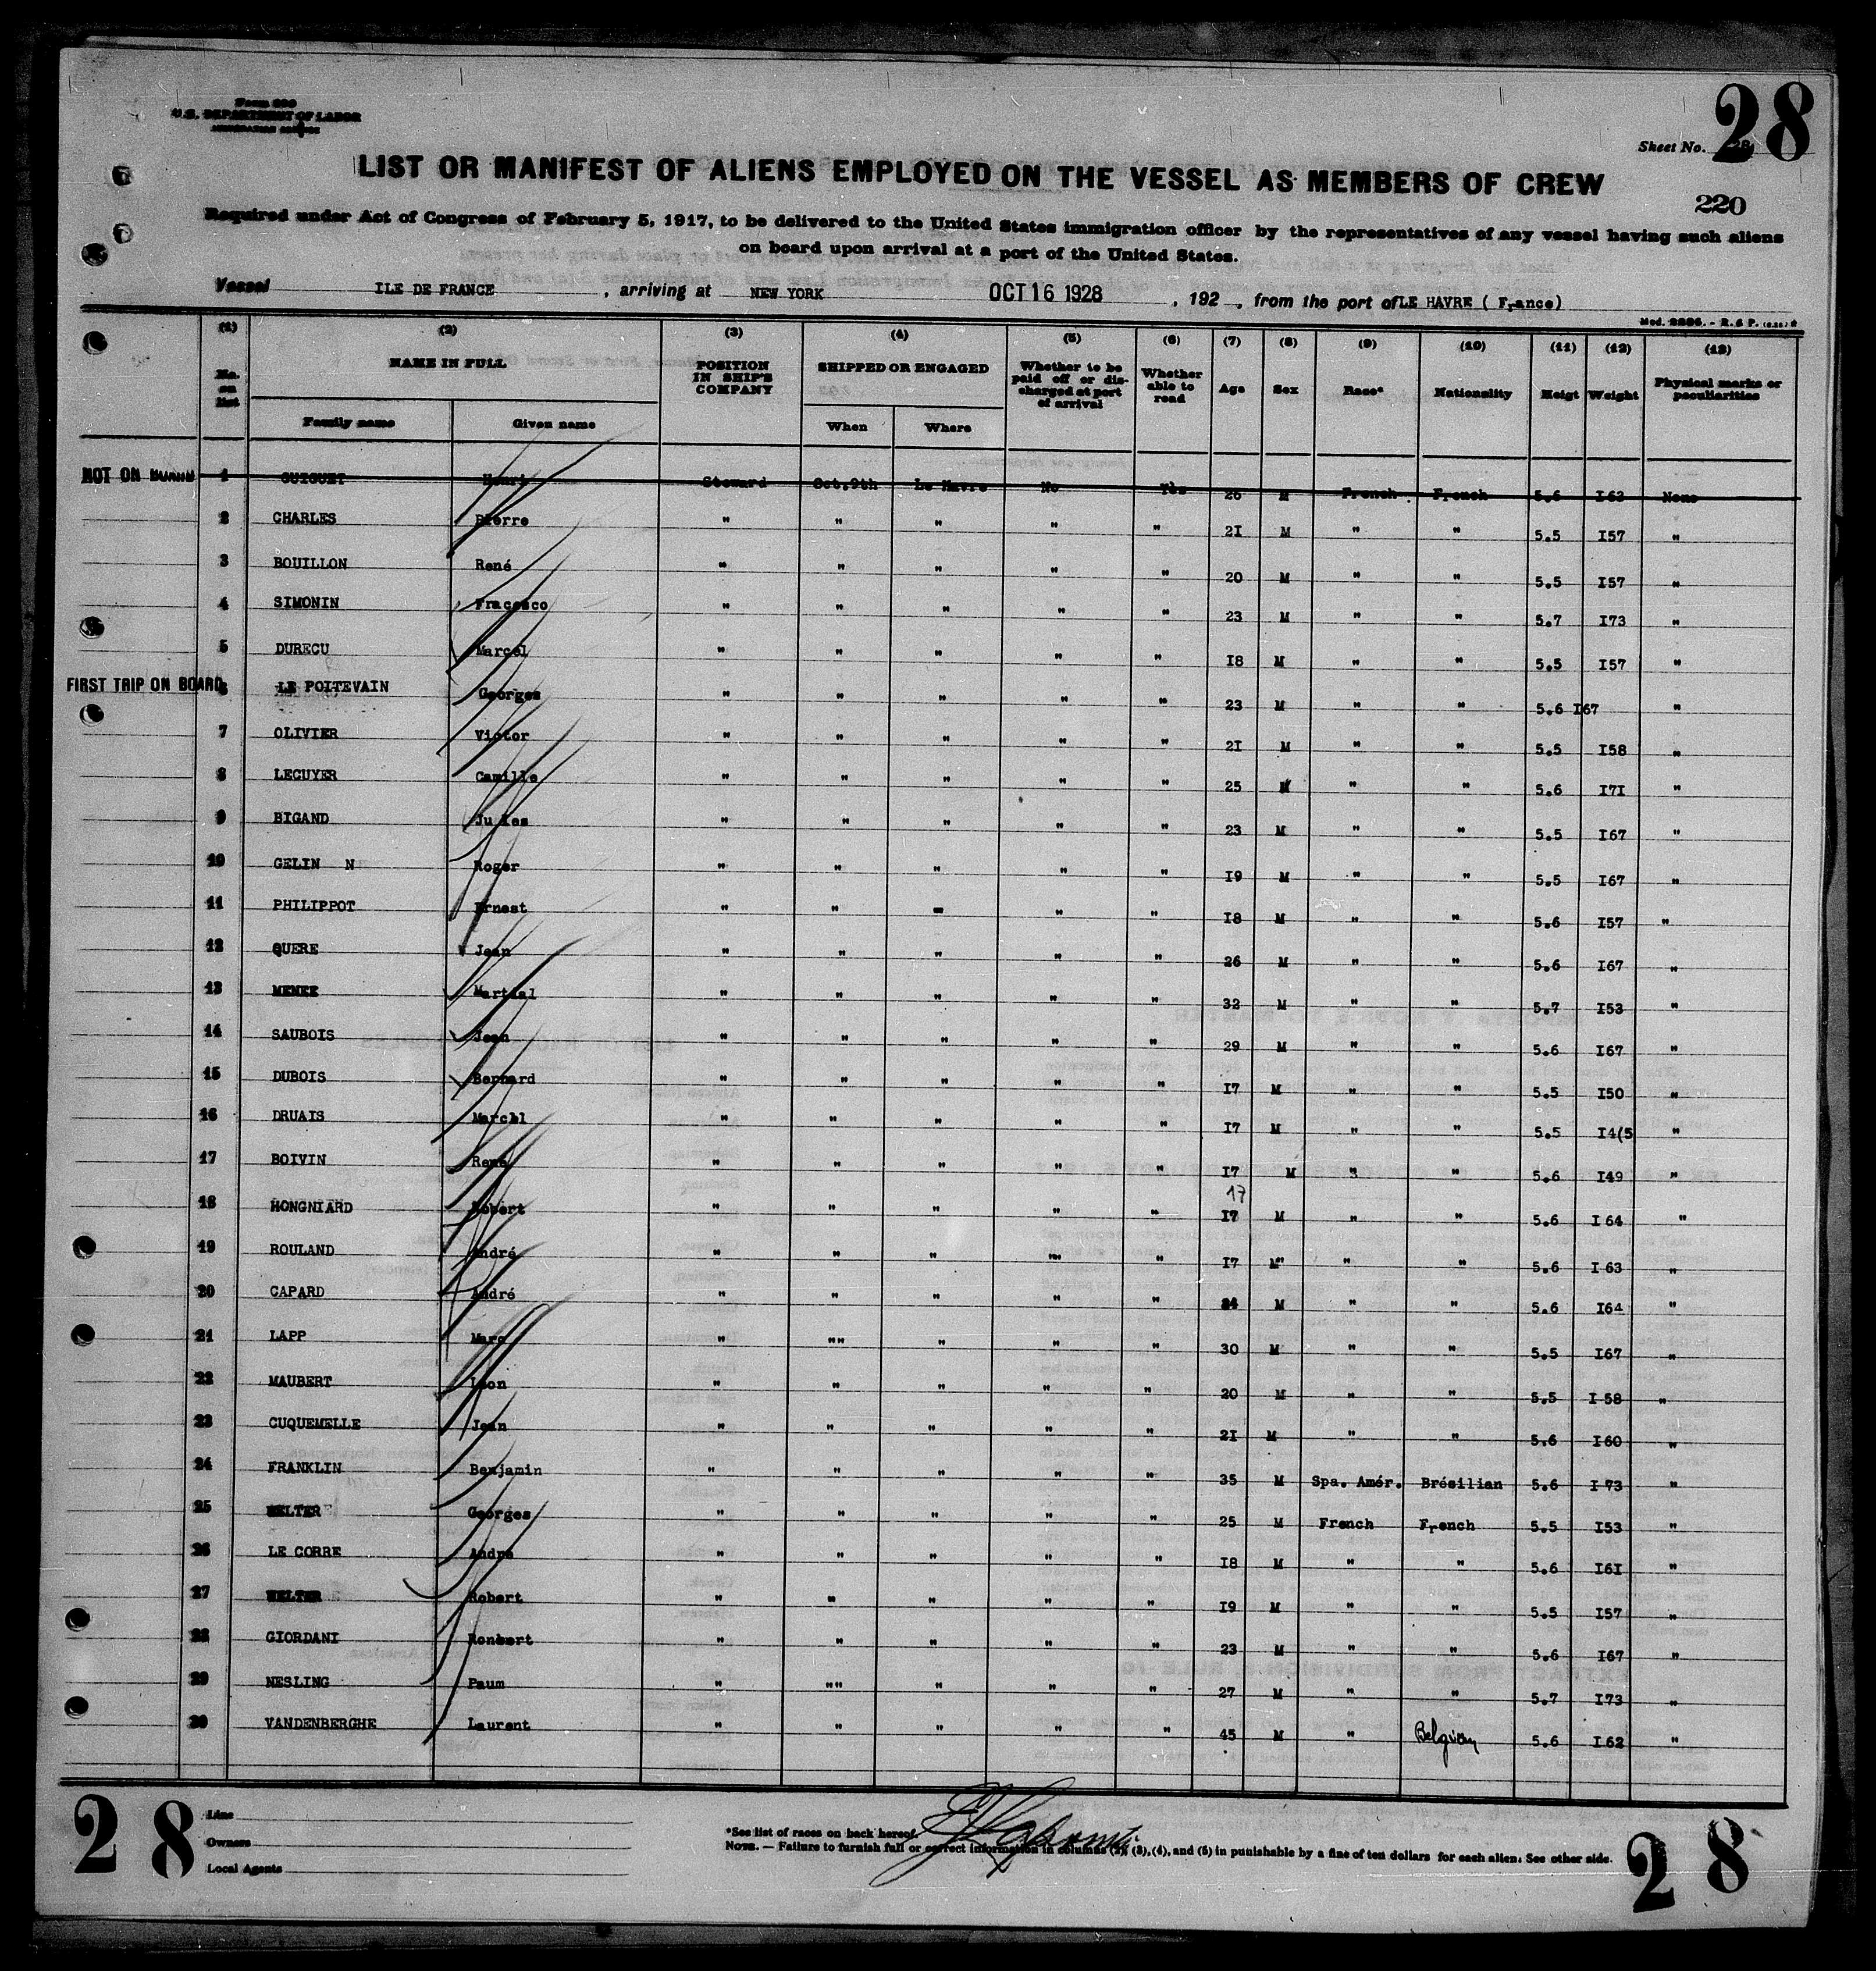 Form 689
U.S. DEPARTMENT OF LABOR
IMMIGRATION SERVICE
Sheet No. 28
LIST OR MANIFEST OF ALIENS EMPLOYED ON THE VESSEL AS MEMBERS OF CREW
220
Required under Act of Congress of February 5, 1917, to be delivered to the United States immigration officer by the representatives of any vessel having such aliens
on board upon arrival at a port of the United States.
Vessel ILE DE FRANCE , arriving at NEW YORK OCT 16 1928 , 192 , from the port of LE HAVRE ( France)
(1) (2) (3) (4) (5) (6) (7) (8) (9) (10) (11) (12) (13)
No. on list NAME IN FULL POSITION IN SHIP'S COMPANY SHIPPED OR ENGAGED Whether to be paid off or discharged at port of arrival Whether able to read Age Sex Race* Nationality Heigt Weight Physical marks or peculiarities
Family name Given name When Where
NOT ON BOARD 1 GUIGUET Henri Steward Oct.9th Le Havre No Yes 26 M French French 5.6 I63 None
2 CHARLES Pierre " " " " " 2I M " " 5.5 I57 "
3 BOUILLON René " " " " " 20 M " " 5.5 I57 "
4 SIMONIN Fracesco " " " " " 23 M " " 5.7 I73 "
5 DURECU Marcel " " " " " I8 M " " 5.5 I57 "
FIRST TRIP ON BOARD 6 LE POITEVAIN Georges " " " " " 23 M " " 5.6 I67 "
7 OLIVIER Victor " " " " " 2I M " " 5.5 I58 "
8 LECUYER Camille " " " " " 25 M " " 5.6 I7I "
9 BIGAND Jules " " " " " 23 M " " 5.5 I67 "
10 GELIN N Roger " " " " " I9 M " " 5.5 I67 "
11 PHILIPPOT Ernest " " " " " I8 M " " 5.6 I57 "
12 QUERE Jean " " " " " 26 M " " 5.6 I67 "
13 MEMEE Martial " " " " " 32 M " " 5.7 I53 "
14 SAUBOIS Jean " " " " " 29 M " " 5.6 I67 "
15 DUBOIS Bernard " " " " " I7 M " " 5.5 I50 "
16 DRUAIS Marcel " " " " " I7 M " " 5.5 I4(5 "
17 BOIVIN René " " " " " I7 M " " 5.6 I49 "
17
18 HONGNIARD Robert " " " " " I7 M " " 5.6 I 64 "
19 ROULAND André " " " " " I7 M" " " 5.6 I 63 "
20 CAPARD André " " " " " 24 M " " 5.6 I64 "
21 LAPP Marc " "" " " " 30 M " " 5.5 I67 "
22 MAUBERT Léon " " " " " 20 M " " 5.5 I 58 "
23 CUQUEMELLE Jean " " " " " 2I M " " 5.6 I60 "
24 FRANKLIN Benjamin " " " " " 35 M Spa. Amér. Brésilian 5.6 I 73 "
25 WELTER Georges " " " " " 25 M French French 5.5 I53 "
26 LE CORRE André " " " " " I8 M " " 5.6 I6I "
27 WELTER Robert " " " " " I9 M " " 5.5 I57 "
28 GIORDANI Ronbert " " " " " 23 M " " 5.6 I67 "
29 NESLING Paum " "" " " " 27 M " " 5.7 I73 "
30 VANDENBERGHE Laurent " " " " " 45 M " Belgian 5.6 I62 "
28 Line
Owners
Local Agents
*See list of races on back hereof.
NOTE. — Failure to furnish full or correct information in columns (2), (3), (4), and (5) in punishable by a fine of ten dollars for each alien. See other side.
28